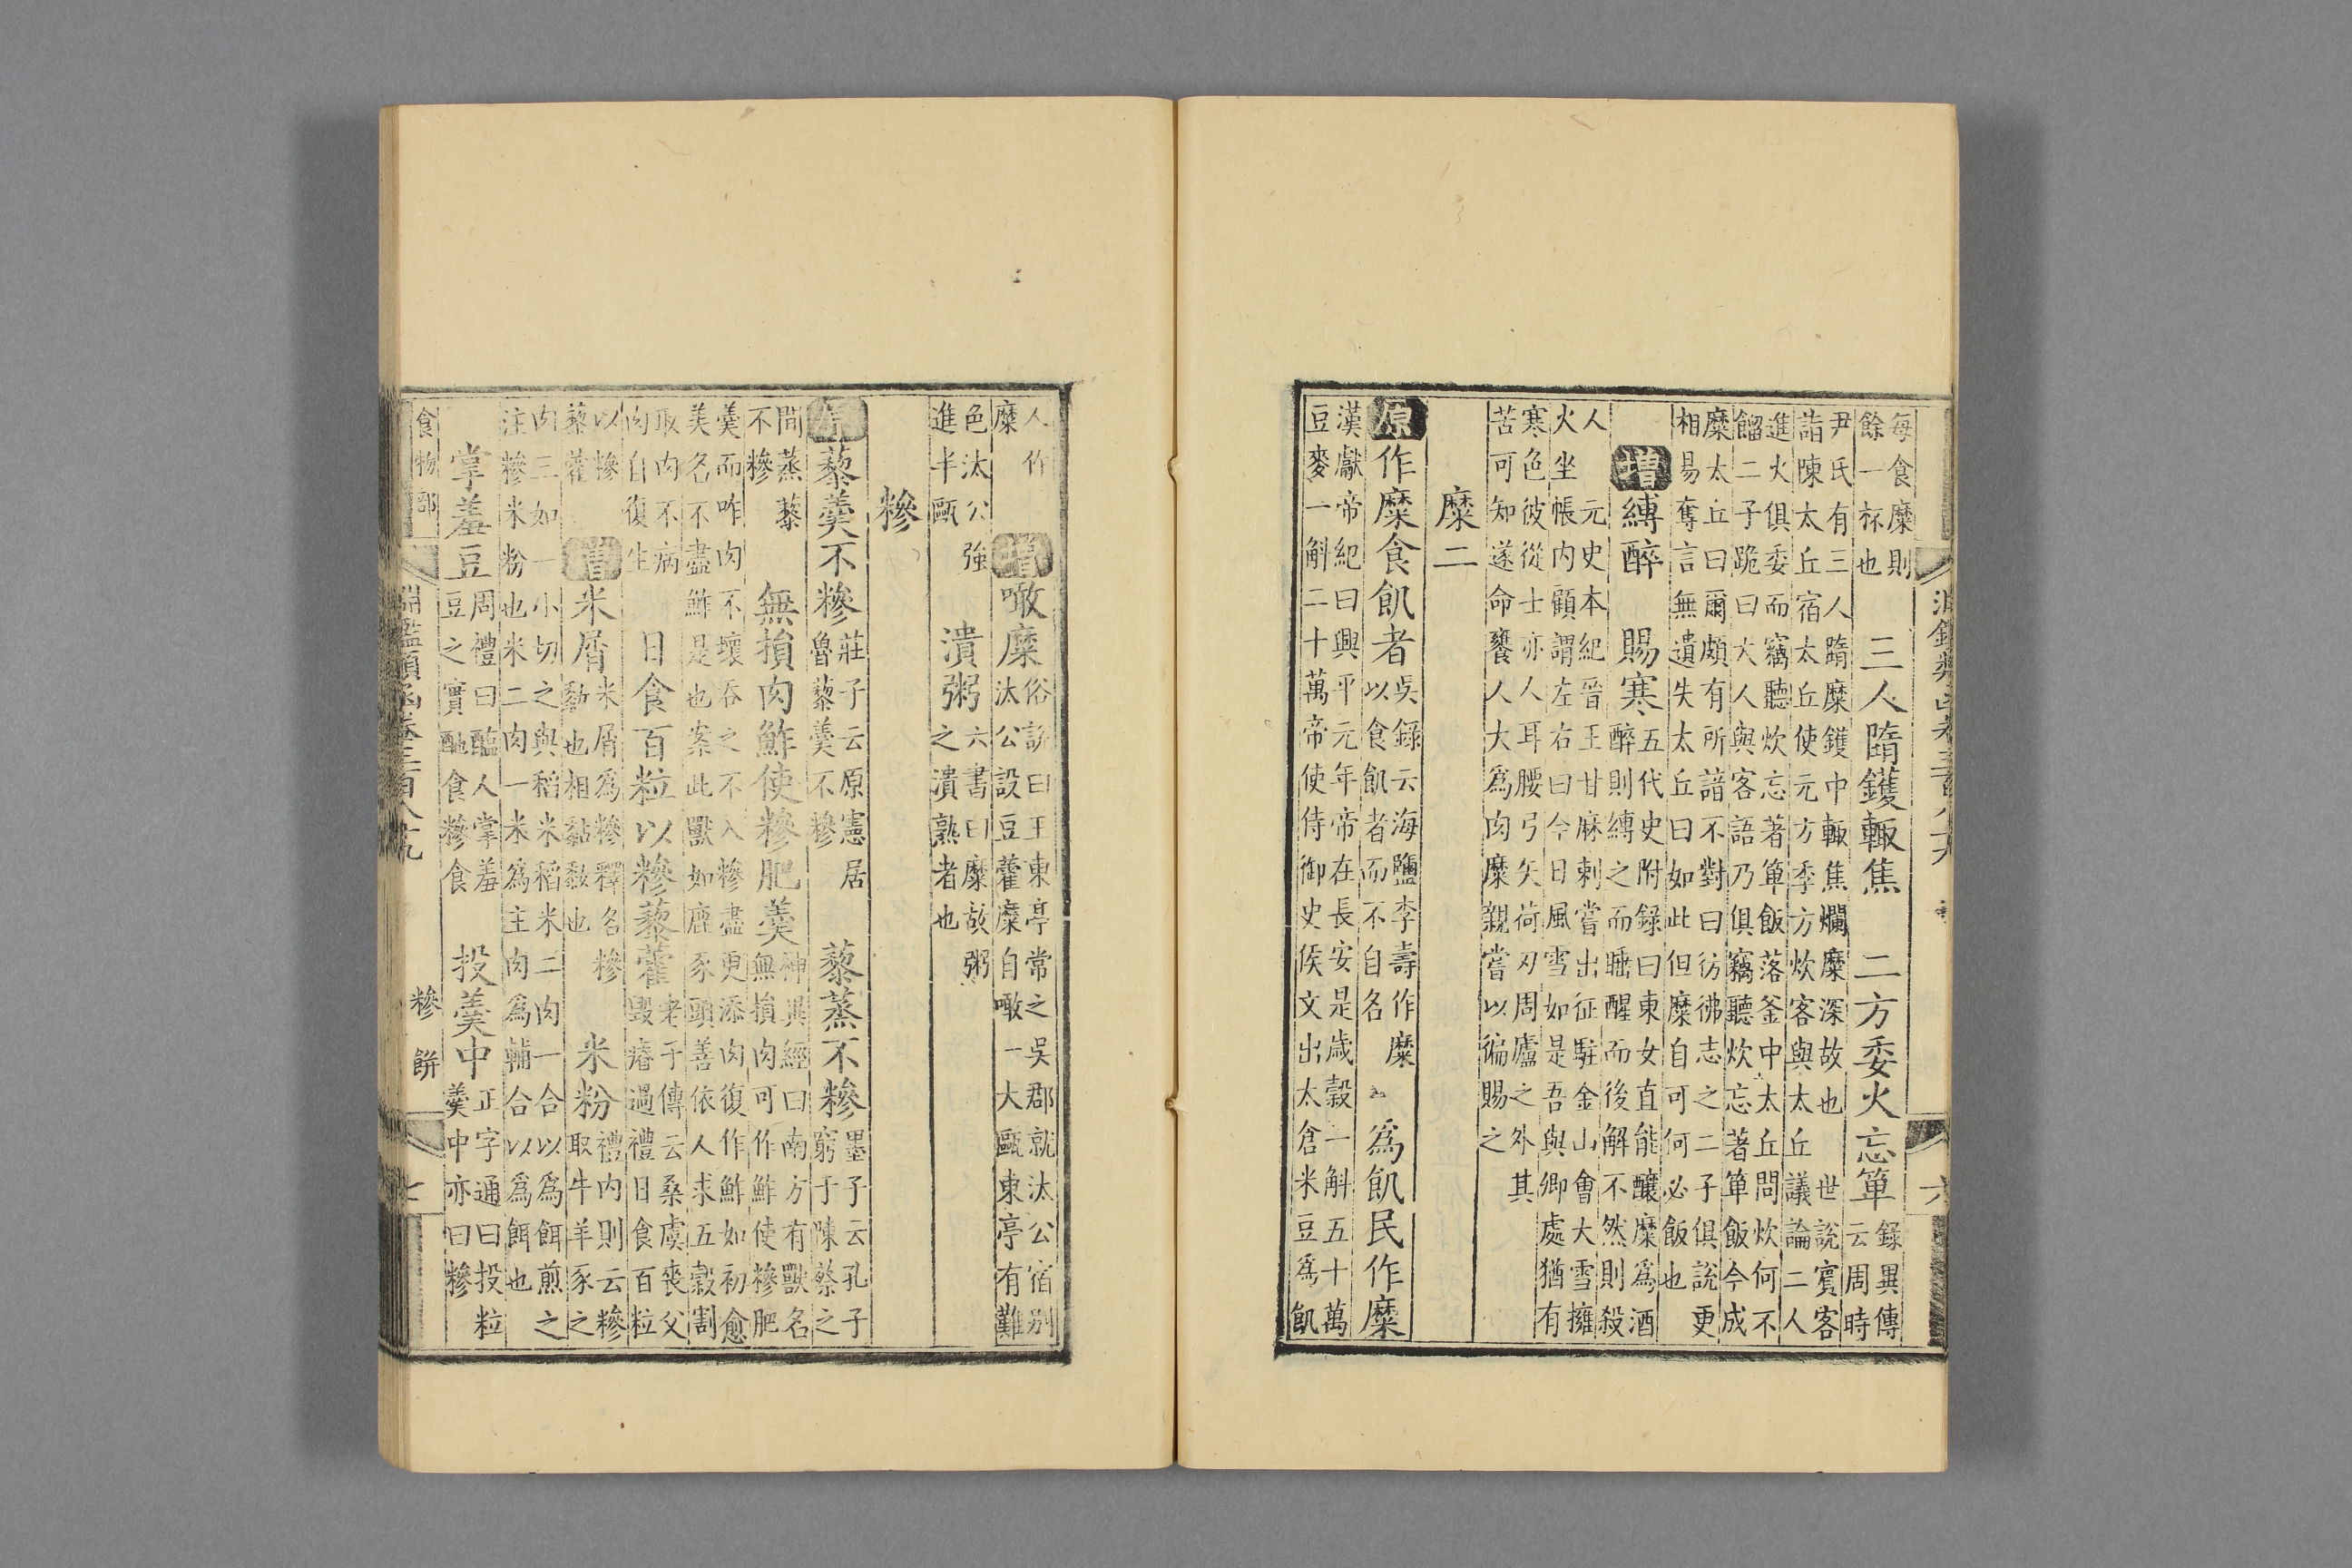 每食糜則餘一杯也 三人隋鑊輙焦 二方委火忘箄 錄異傳云周時
尹氏有三人蹋糜鑊中輙焦爛糜深故也 世說賓客詣陳太丘宿太丘使元方季方炊客與太丘議論二人
進火俱委而竊聽炊忘著箄飯落釜中太丘問炊何不餾二子跪曰大人與客語乃俱竊聽炊忘著箄飯今成
糜太丘曰爾頗有所諳不對曰彷彿志之二子俱說更相易奪言無遺失太丘曰如此但糜自可何必飯也
增縛醉 賜寒 五代史附錄曰東女直能釀糜爲酒醉則縛之而睡醒而後解不然則殺
人 元史本紀晉王甘麻剌嘗出征駐金山會大雪擁火坐帳內顧謂左右曰今日風雪如是吾與卿處猶有
寒色彼從士亦人耳腰弓矢荷刃周廬之外其苦可知遂命饔人大爲肉糜親嘗以徧賜之
糜二
原作糜食飢者 吳錄云海鹽李壽作糜以食飢者而不自名 爲飢民作糜
漢獻帝紀曰興平元年帝在長安是歲穀一斛五十萬豆麥一斛二十萬帝使侍御史侯文出太倉米豆爲飢
人作糜 增噉糜 俗說曰王東亭常之吳郡就汰公宿別汰公設豆藿糜自噉一大甌東亭有難
色汰公強進半甌 潰粥 六書曰糜故粥之潰熟者也
糝
原藜羹不糝 莊子云原憲居魯藜羹不糝 藜蒸不糝 墨子云孔子窮于陳蔡之
間蒸藜不糝 無損肉鮓使糝肥羹 神異經曰南方有獸名無損肉可作鮓使糝肥
羹而咋肉不壞吞之不入糝盡更添肉復作鮓如初愈美名不盡鮓是也案此獸如鹿豕頭善依人求五穀割
取肉不病肉自復生 日食百粒以糝藜藿 老子傳云桑虞喪父毀瘠過禮日食百粒
以糝藜藿 增米屑 米屑爲糝釋名糝黏也相黏黏也 米粉 禮內則云糝取牛羊豕之
肉三如一小切之與稻米稻米二肉一合以爲餌煎之注糝米粉也米二肉一米爲主肉爲輔合以爲餌也
掌羞豆 周禮曰醢人掌羞豆之實酏食糝食 投羹中 正字通曰投粒羹中亦曰糝
食物部
淵鑑類函卷三百八十九
糝 餅
七